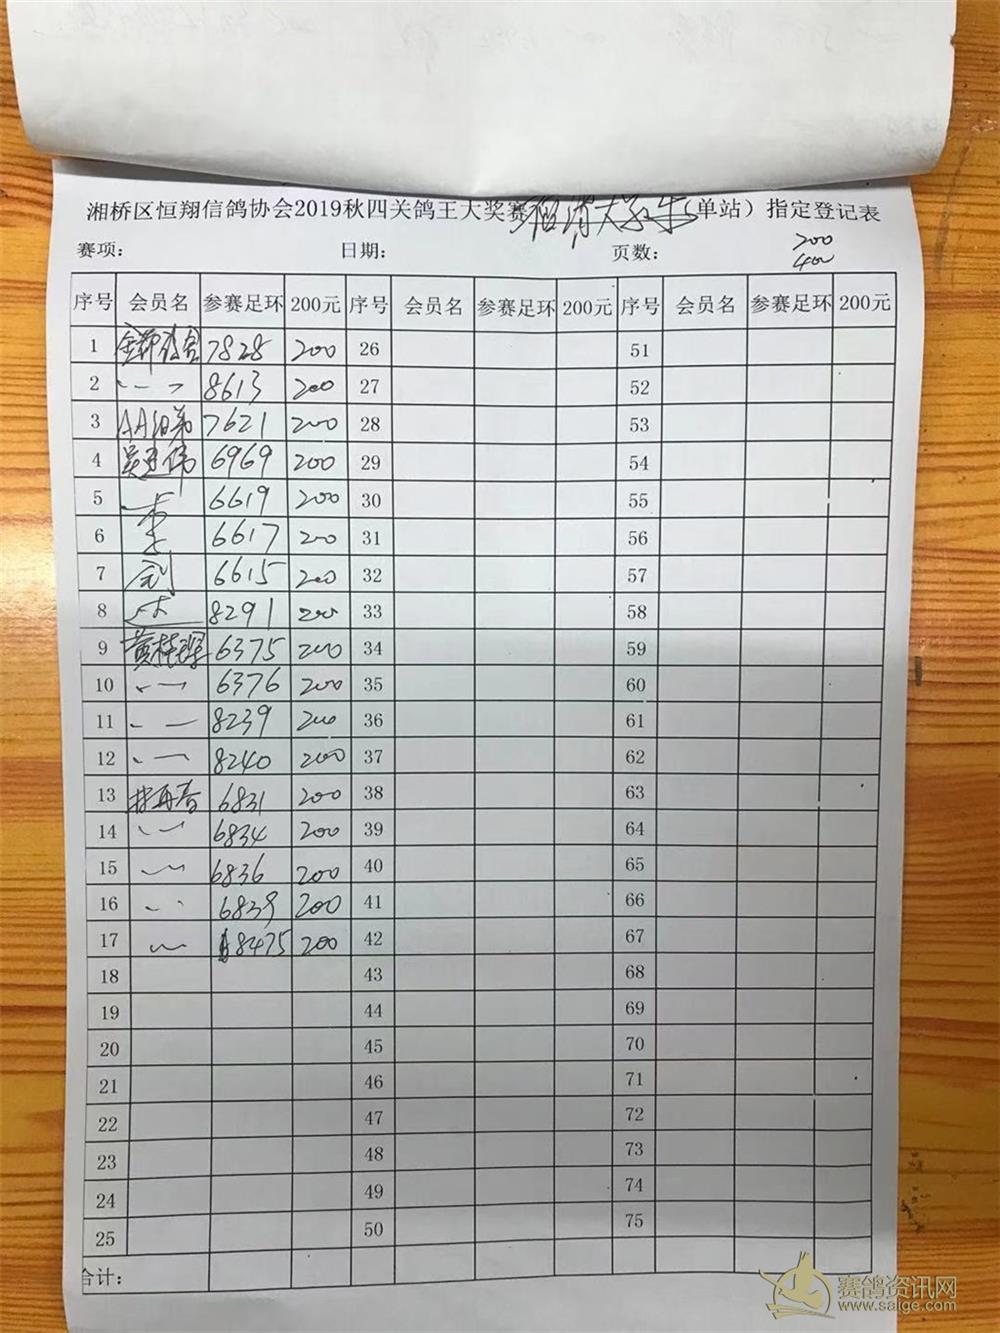 湘桥区恒翔信鸽协会2019秋四关鸽王大奖赛 （单站）指定登记表
赛项： 日期： 页数： 200
400
序号 会员名 参赛足环 200元 序号 会员名 参赛足环 200元 序号 会员名 参赛足环 200元
1 7828 200 26 51
2 8613 200 27 52
3 7621 200 28 53
4 6969 200 29 54
5 6619 200 30 55
6 李 6617 200 31 56
7 剑 6615 200 32 57
8 8291 200 33 58
9 6375 200 34 59
10 6376 200 35 60
11 8239 200 36 61
12 8240 200 37 62
13 林再春 6831 200 38 63
14 6834 200 39 64
15 6836 200 40 65
16 6839 200 41 66
17 8475 200 42 67
18 43 68
19 44 69
20 45 70
21 46 71
22 47 72
23 48 73
24 49 74
25 50 75
合计：
赛鸽资讯网
www.saige.com